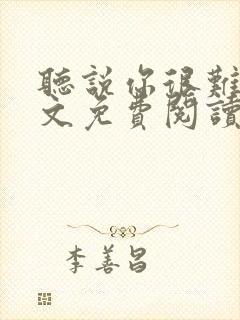 聽說你很難
文免費閱讀
李善昌